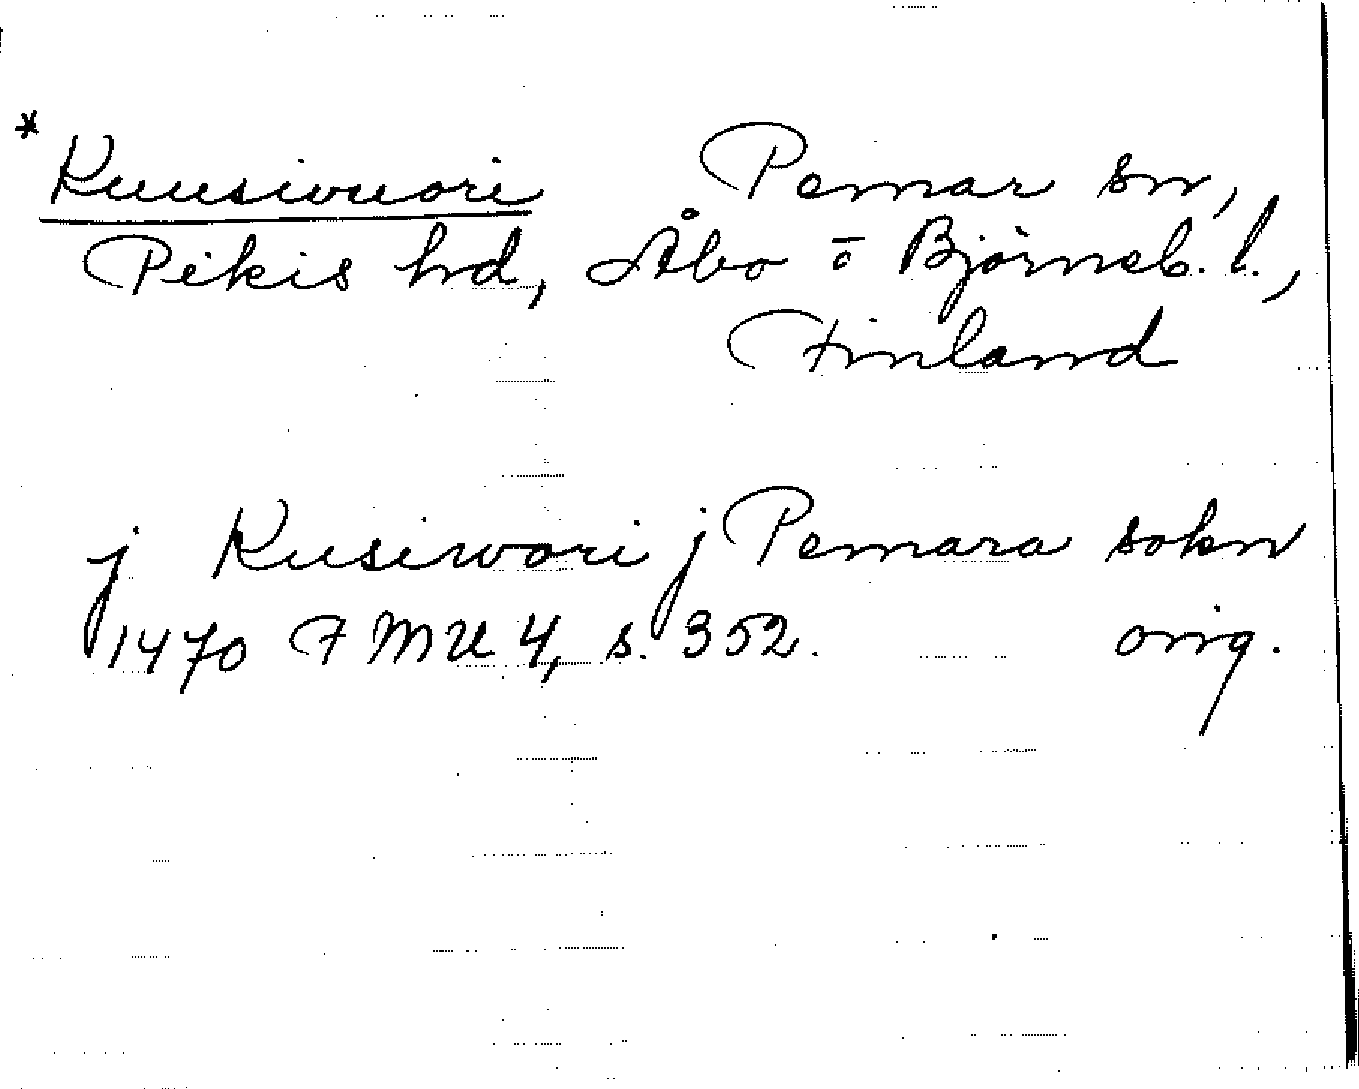 * Kuusivuori Pemar sn,
Pikis hd, Åbo o Björneb. l.,
Finland
j Kusiwori j Pemara sokn
1470 FMU 4, s. 352. orig.